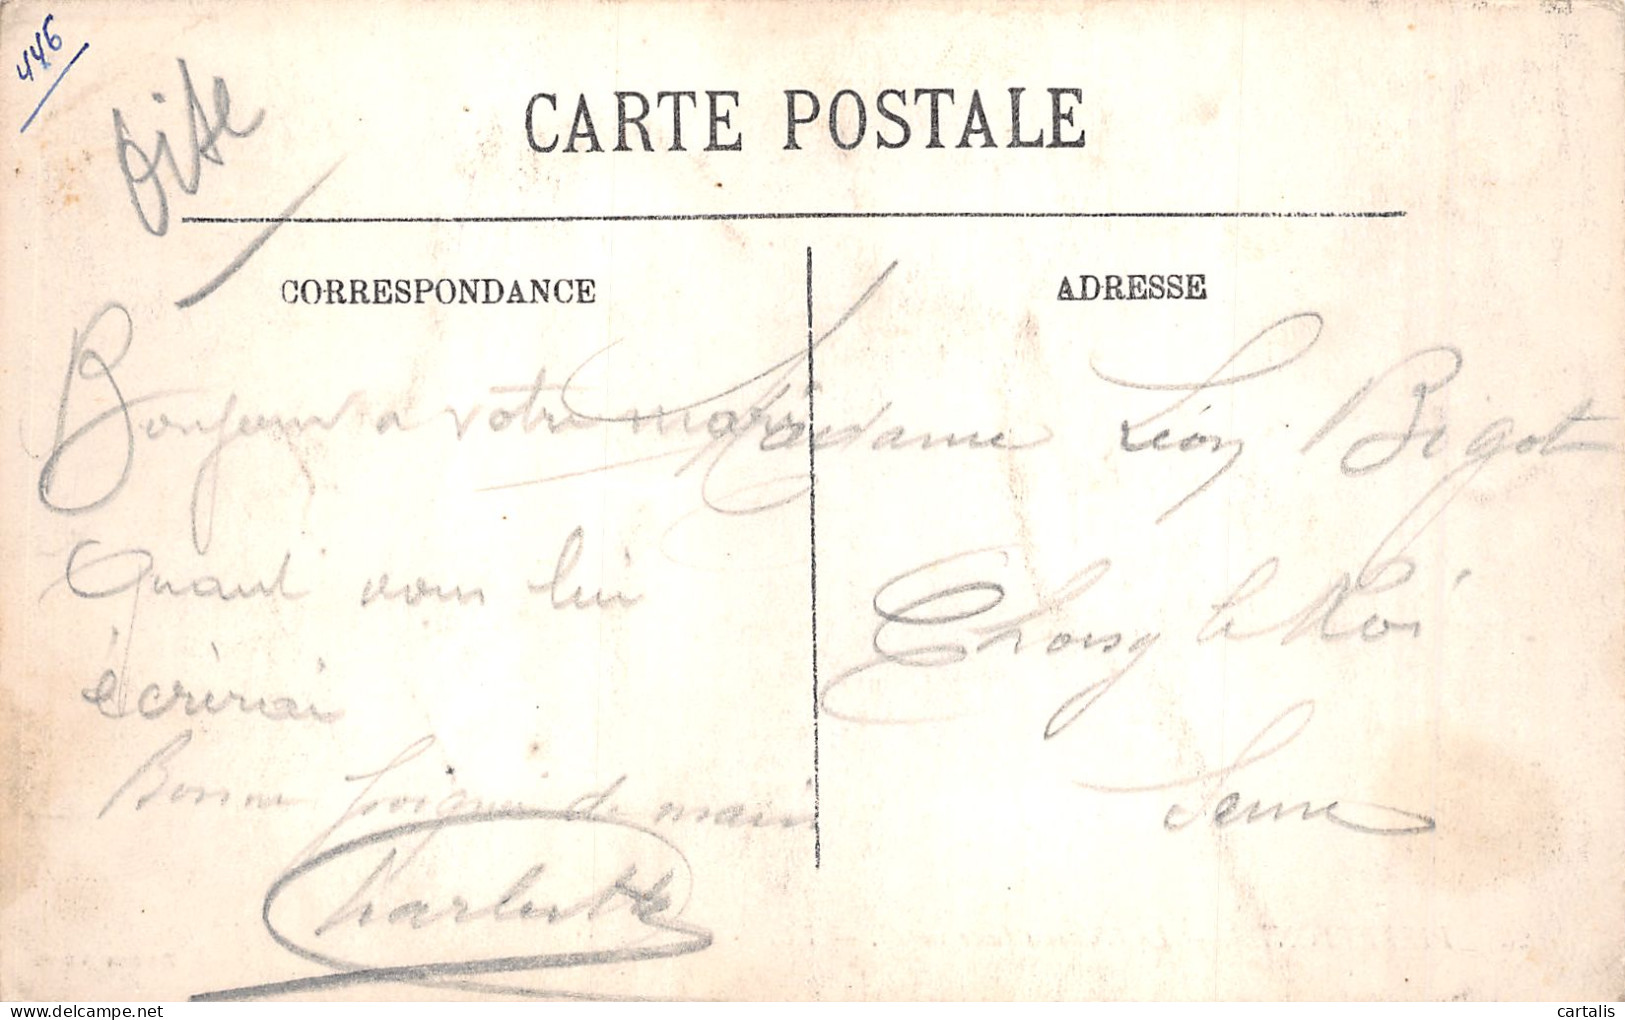 446
Oise
CARTE POSTALE
CORRESPONDANCE
ADRESSE
Bonjour a votre mari
Quant vous lui
écrirai
Bonne poignée de main
Charlotte
Madame Léon Bigot
Choisy le Roi
Seine
cartalis